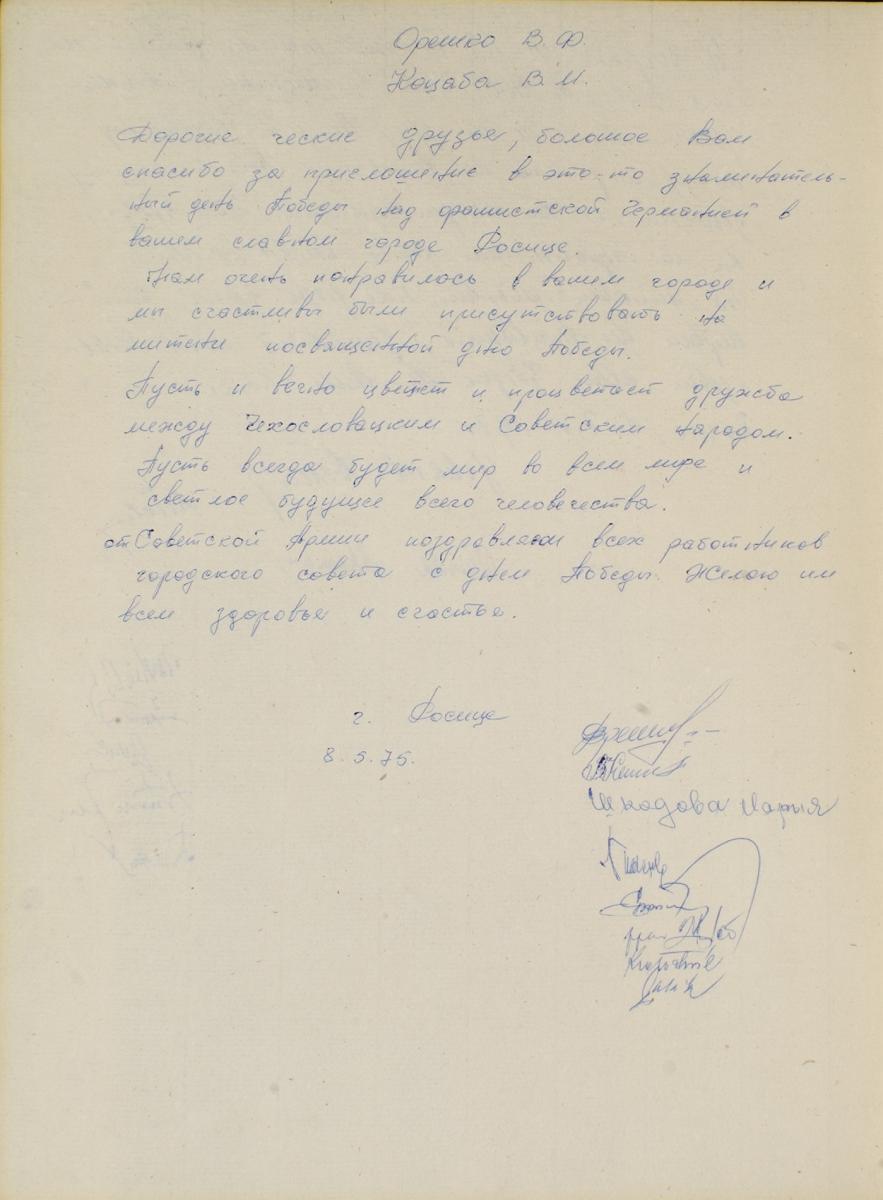 Орешко В. Ф.
Коцаба В. М.
Дорогие ческие друзья, большое Вам
спасибо за приглошение в это-то знаминатель-
ный день Победы над фашистской Германией в
вашем славном городе Росице.
Нам очень понравилось в вашем городе и
мы счастливы были присутствовать на
митенги посвященной дню Победы.
Пусть и вечно цветет и процветает дружба
между Чехословацким и Советским народом.
Пусть всегда будет мир во всем мире и
светлое будущее всего человечества.
от Советской Армии поздравляем всех работников
городского совета с днем Победы. Желаю им
всем здоровья и счастья.
г. Росице
8.5.75.
Шкодова Марыя